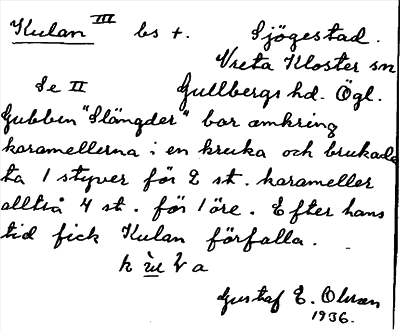 Kulan III bs +. Sjögestad.
Vreta Kloster sn
Se II Gullbergs hd. Ögl.
Gubben "Slängder" bar omkring
karamellerna i en kruka och brukade
ta 1 styver för 2 st. karameller
alltså 4 st. för 1 öre. Efter hans
tid fick Kulan förfalla.
Gustaf E. Olsson
1936.